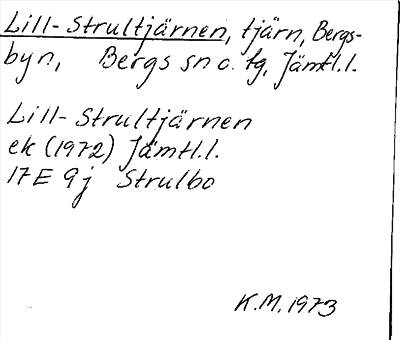 Lill-Strultjärnen, tjärn, Bergs-
byn, Bergs sn o. tg, Jämtl.l.
Lill-Strultjärnen
ek (1972) Jämtl.l.
17E 9j Strulbo
K.M. 1973